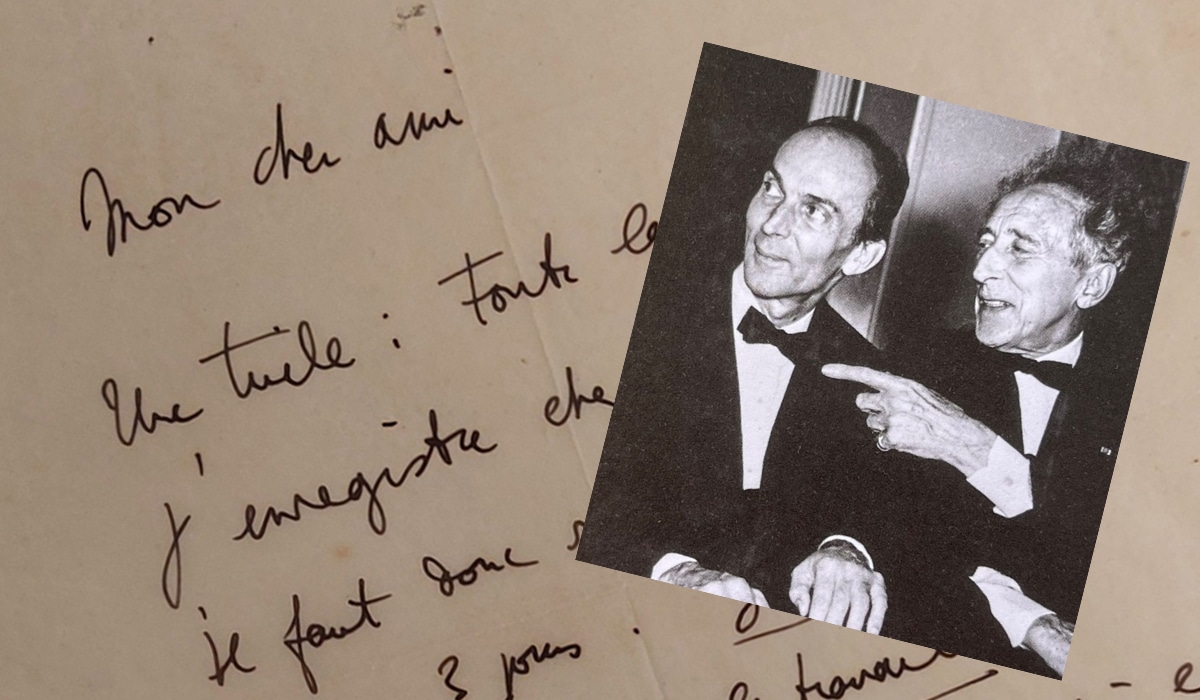 Mon cher ami
Une tuile : toute la
j'enregistre che
je faut donc
3 jours.
le travail